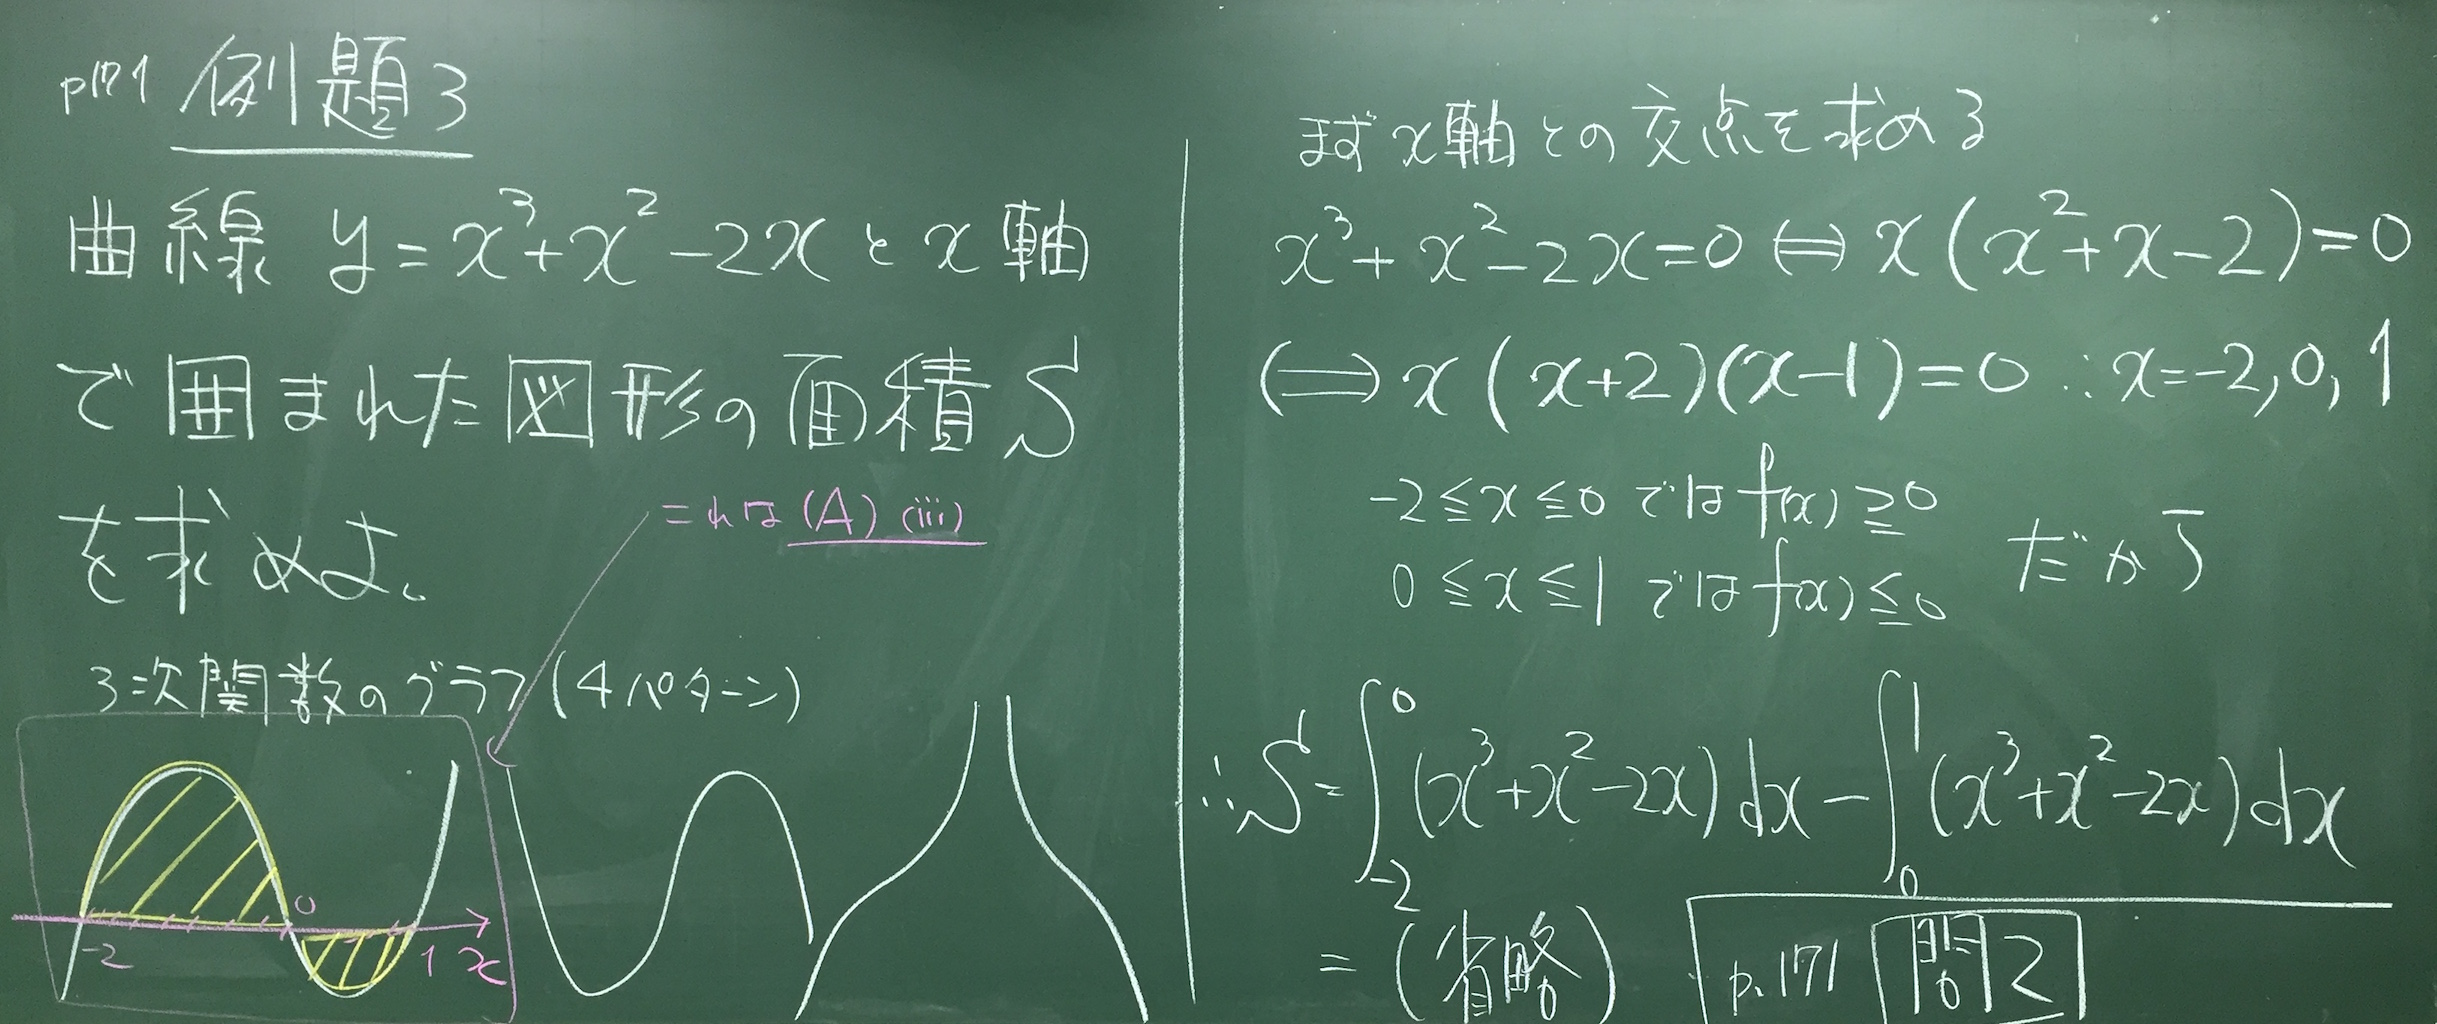 p171 例題3
曲線 y=x³+x²-2xとx軸
で囲まれた図形の面積S
を求めよ。
これは(A)(iii)
3次関数のグラフ(4パターン)
-2 0 1 x
まずx軸との交点を求める
x³+x²-2x=0⇔x(x²+x-2)=0
⇔x(x+2)(x-1)=0 ∴x=-2,0,1
-2≦x≦0 では f(x)≧0
0≦x≦1 では f(x)≦0
だから
∴S=∫₋₂⁰(x³+x²-2x)dx-∫₀¹(x³+x²-2x)dx
=(省略)
p.171 問2